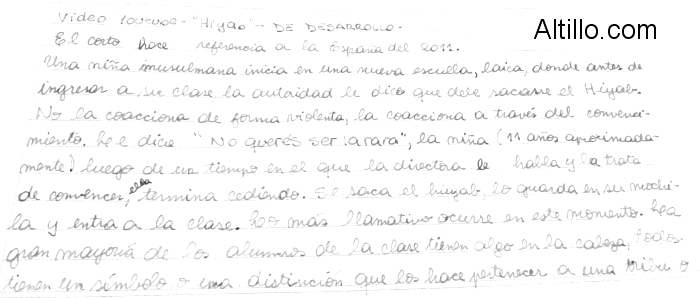 Altillo.com
Video YOUTUBE - "Hiyab" - DE DESARROLLO -
El corto hace referencia a la España del 2011.
Una niña musulmana inicia en una nueva escuela, laica, donde antes de
ingresar a su clase la autoridad le dice que debe sacarse el Hiyab.
No la coacciona de forma violenta, la coacciona a través del convenci-
miento. Le dice "No querés ser la rara", la niña (11 años aproximada-
mente) luego de un tiempo en el que la directora le habla y la trata
de convencer, ella termina cediendo. Se saca el huyab, lo guarda en su mochi-
la y entra a la clase. Lo más llamativo ocurre en este momento. La
gran mayoría de los alumnos de la clase tienen algo en la cabeza, todos
tienen un símbolo o una distinción que los hace pertenecer a una tribu o